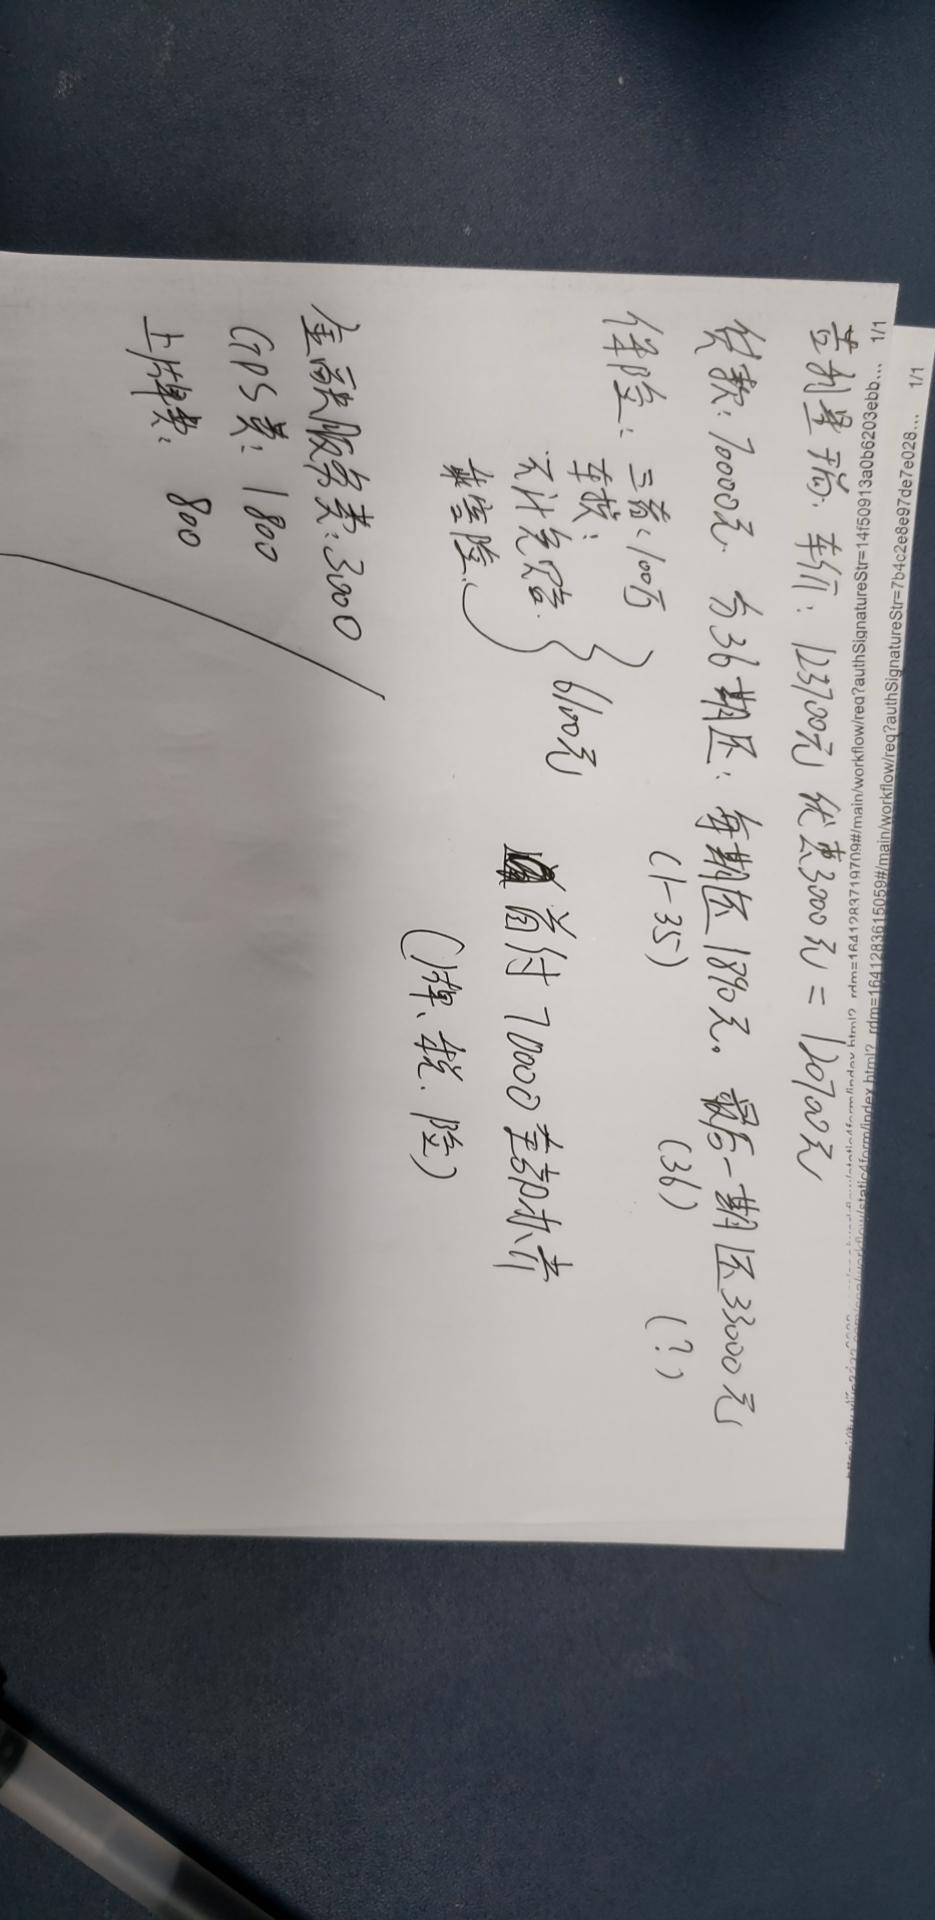 1/1
1/1
rdm=1641283615059#/main/workflow/req?authSignatureStr=7b4c2e8e97de7e028...
rdm=1641283719709#/main/workflow/req?authSignatureStr=14f50913a0b6203ebb...
吉利星瑞: 车价: 123700元 优惠3000元 = 120700元
贷款: 70000元 分36期还: 每期还1890元。最后一期还33000元
(1-35) (36) (?)
保险: 三者: 100万
车损:
不计免赔.
座险.
} 6100元
首付70000全部办齐
(牌、税、险)
金融服务费: 3000
GPS费: 1800
上牌费: 800